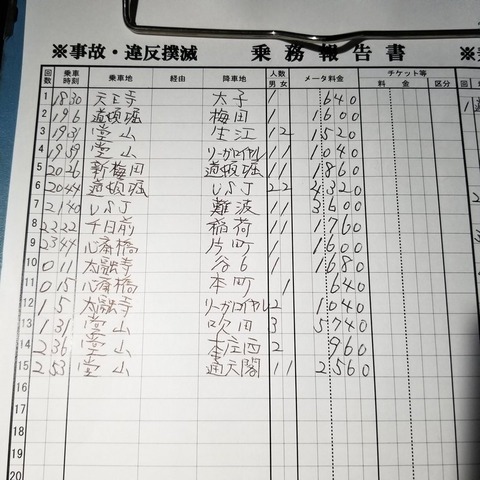 ※事故・違反撲滅 乗務報告書
回数 乗車時刻 乗車地 経由 降車地 人数 男 女 メータ料金 チケット等 料金 区分
1 1830 天王寺 太子 1 640
2 196 道頓堀 梅田 1 1600
3 1931 堂山 生江 1 2 1520
4 1959 堂山 リーガロイヤル 1 1 1040
5 2026 新梅田 道頓堀 1 1 1860
6 2044 道頓堀 USJ 2 2 4320
7 2140 USJ 難波 1 1 3600
8 2222 千日前 稲荷 1 1 1760
9 2344 心斎橋 片町 1 1600
10 011 太融寺 谷6 1 1680
11 015 心斎橋 本町 1 640
12 15 太融寺 リーガロイヤル 2 1040
13 131 堂山 吹田 3 5740
14 236 堂山 本庄西 2 960
15 253 堂山 通天閣 1 1 2560
16
17
18
19
20